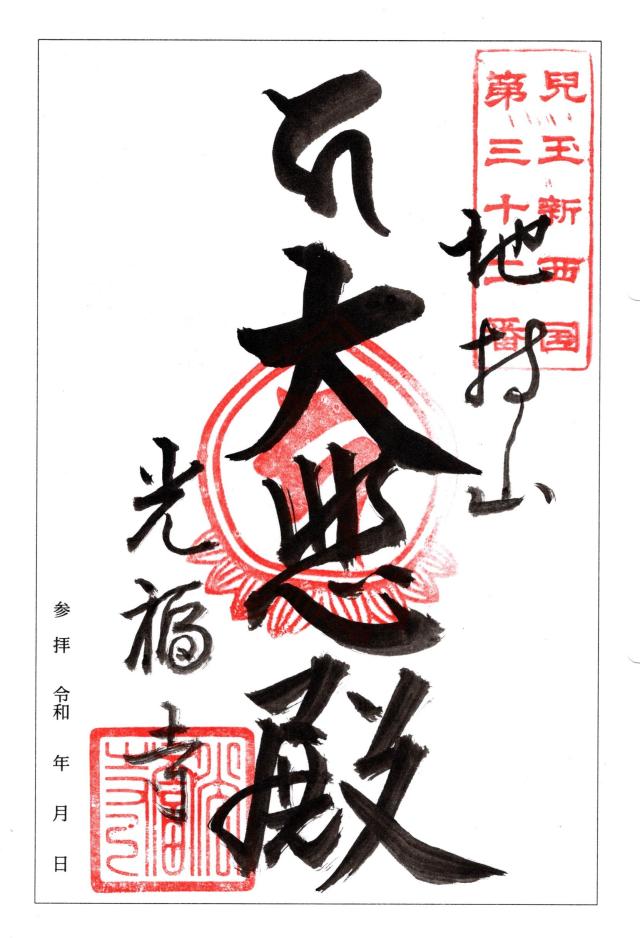 兒玉新西国
第三十二番
地持山
大悲殿
光福寺
参拝 令和 年 月 日